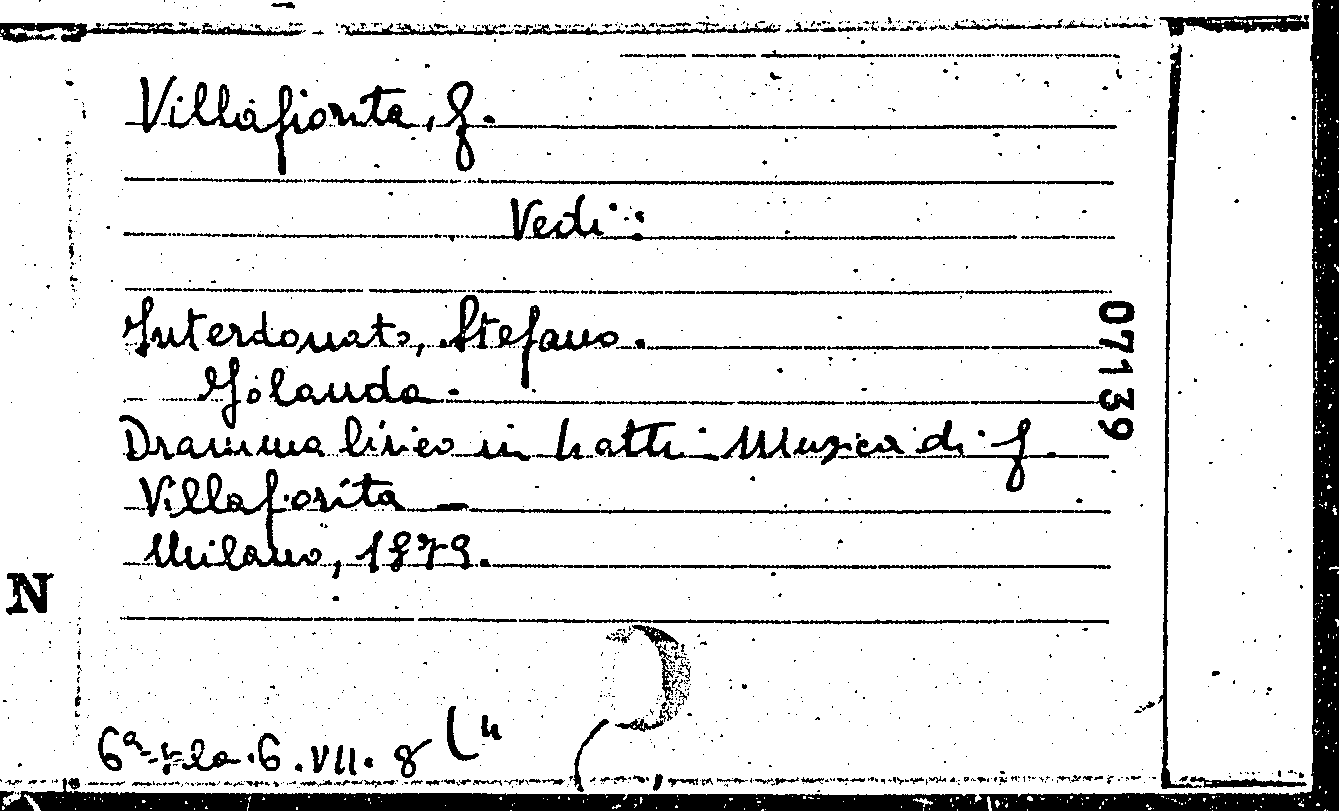 Villafiorita, G.
Vedi:
Interdonato, Stefano.
Jolanda.
Dramma lirico in 4 atti - Musica di G.
Villafiorita -
Milano, 1879.
07139
N
6.VII.8